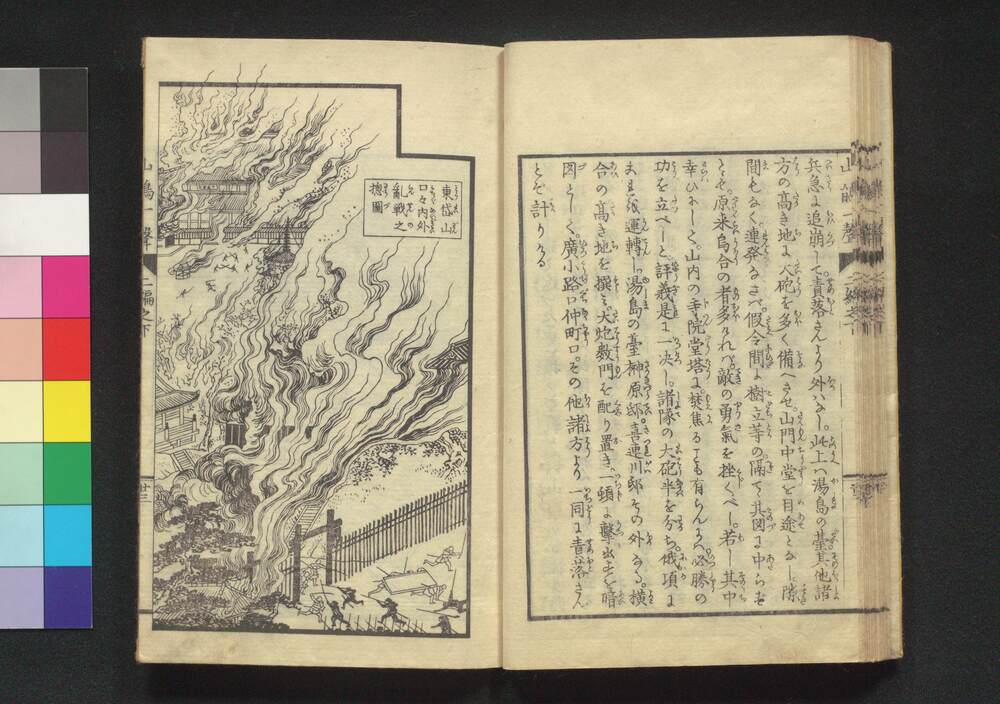 兵急に追崩して責落さんより外はなし。此上ハ湯島の臺其他諸
方の髙き地よ大砲を多く備へさせ。山門中堂を目途となし隙
間もなく連発なさバ。假令間に樹立等の隔て其図に中らず
とも。原来烏合の者多けれバ。敵の勇氣を挫くべし。若し其中
幸ひにして。山内の寺院堂塔に。焚焦ることも有らんかバ必勝の
功を立べしと評義是に一决し。諸隊の大砲半を分ち。俄頃に
運轉し湯島の臺榊原邸。喜連川邸その外なる。横
合の髙き地を撰ミ大炮数門を配り置き、一頭に撃出させ暗
図として。廣小路口仲町口。その他諸方より一同に責落さん
とぞ計りける
東岱山
口々内外
亂戰之
揔圖
山鵑一聲
二編之下
廿三